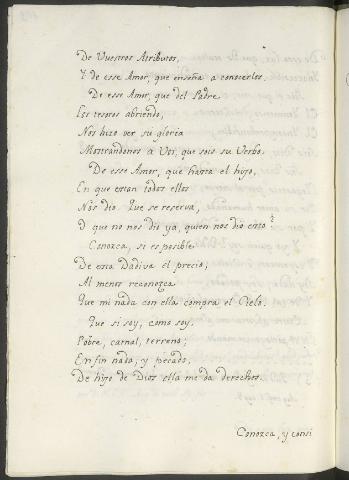 De Vuestros Atributos,
Y de esse Amor, que enseña a conocerlos.
De esse Amor, que del Padre
Los tesoros abriendo,
Nos hizo ver su gloria
Mostrandonos a Vos, que sois su Verbo.
De esse Amor, que hasta el hijo,
En que estan todos ellos
Nos dio. Que se reserva,
O que no nos dio ya, quien nos dio esto?
Conozca, si es posible
De esta Dadiva el precio;
Al menos reconozca
Que mi nada con ella compra el Cielo.
Que si soy, como soy.
Pobre, carnal, terreno;
En fin nada, y pecado,
De hijo de Dios ella me da derechos.
Conozca, y consi